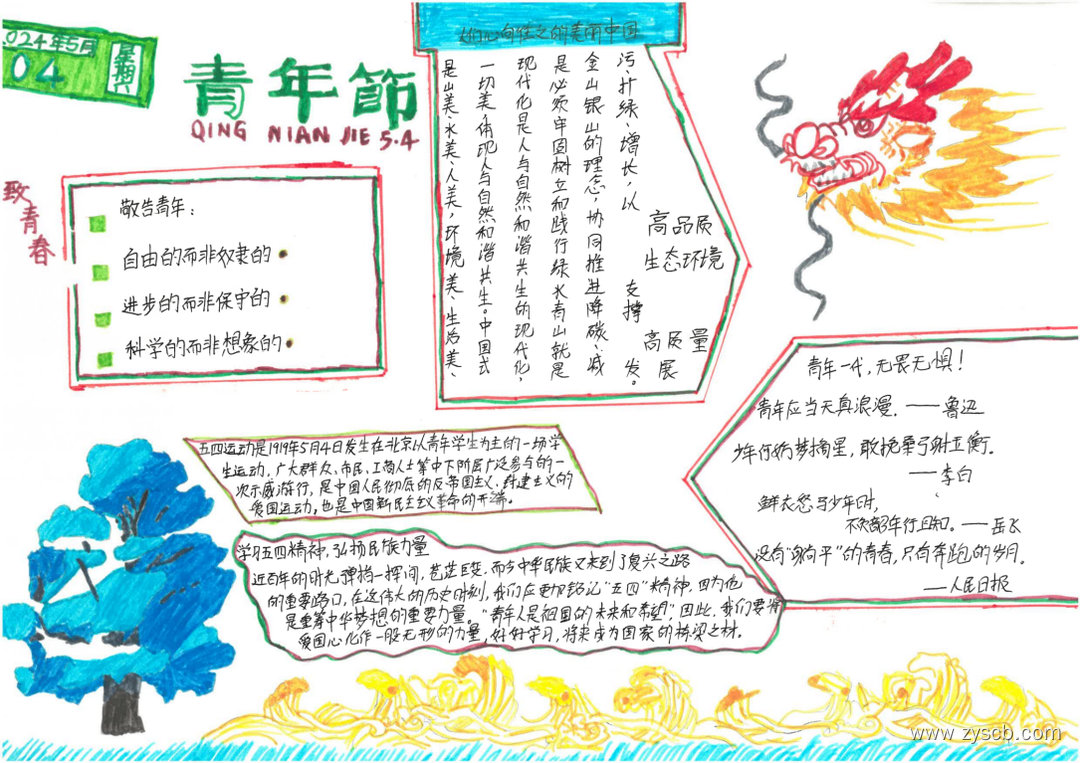 2024年5月
04
星期六
青年節
QING NIAN JIE 5.4
致青春
敬告青年：
自由的而非奴隶的
进步的而非保守的
科学的而非想象的
人们心向往之的美丽中国
是山美、水美、人美，环境美、生活美、
一切美，体现人与自然和谐共生。中国式
现代化是人与自然和谐共生的现代化，
是必须牢固树立和践行绿水青山就是
金山银山的理念，协同推进降碳、减
污、扩绿、增长，以
高品质
生态环境
支撑
高质量
发展。
青年一代，无畏无惧！
青年应当天真浪漫。——鲁迅
少年何妨梦摘星，敢挽桑弓射玉衡。
——李白
鲜衣怒马少年时，
不负韶华行且知。——岳飞
没有“躺平”的青春，只有奔跑的岁月。
——人民日报
五四运动是1919年5月4日发生在北京以青年学生为主的一场学
生运动，广大群众、市民、工商人士等中下阶层广泛参与的一
次示威游行，是中国人民彻底的反帝国主义、封建主义的
爱国运动，也是中国新民主主义革命的开端。
学习五四精神，弘扬民族力量
近百年的时光弹指一挥间，苍茫巨变。而今中华民族又来到了复兴之路
的重要路口，在这伟大的历史时刻，我们应更加铭记“五四”精神，因为他
是重筹中华梦想的重要力量。“青年人是祖国的未来和希望”因此，我们要将
爱国心化作一股无形的力量，好好学习，将来成为国家的栋梁之材。
www.zyscb.com